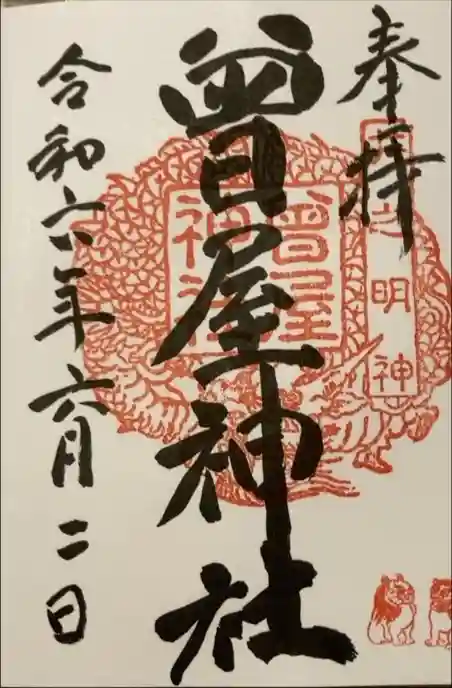 奉拝
曽屋神社
令和六年六月二日
曽屋
神社
明神